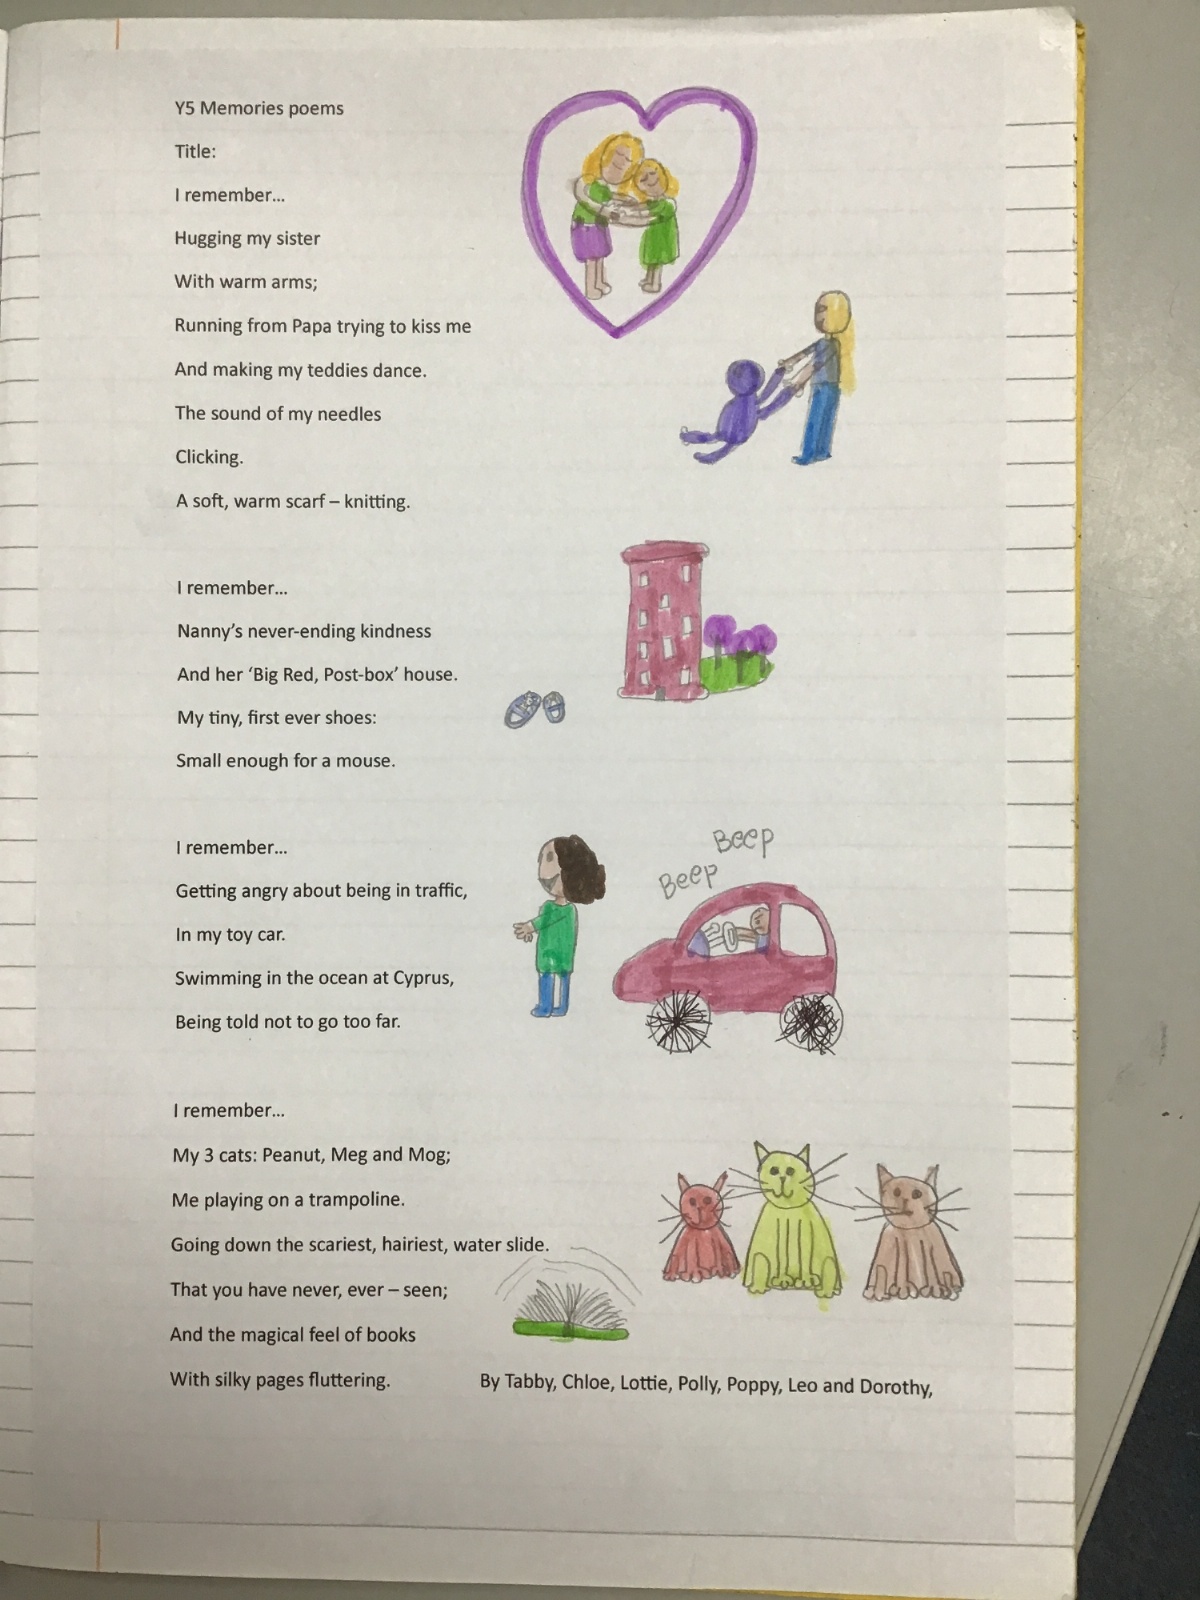 Y5 Memories poems
Title:
I remember...
Hugging my sister
With warm arms;
Running from Papa trying to kiss me
And making my teddies dance.
The sound of my needles
Clicking.
A soft, warm scarf – knitting.
I remember...
Nanny's never-ending kindness
And her 'Big Red, Post-box' house.
My tiny, first ever shoes:
Small enough for a mouse.
I remember...
Getting angry about being in traffic,
In my toy car.
Swimming in the ocean at Cyprus,
Being told not to go too far.
Beep
Beep
I remember...
My 3 cats: Peanut, Meg and Mog;
Me playing on a trampoline.
Going down the scariest, hairiest, water slide.
That you have never, ever – seen;
And the magical feel of books
With silky pages fluttering.
By Tabby, Chloe, Lottie, Polly, Poppy, Leo and Dorothy,